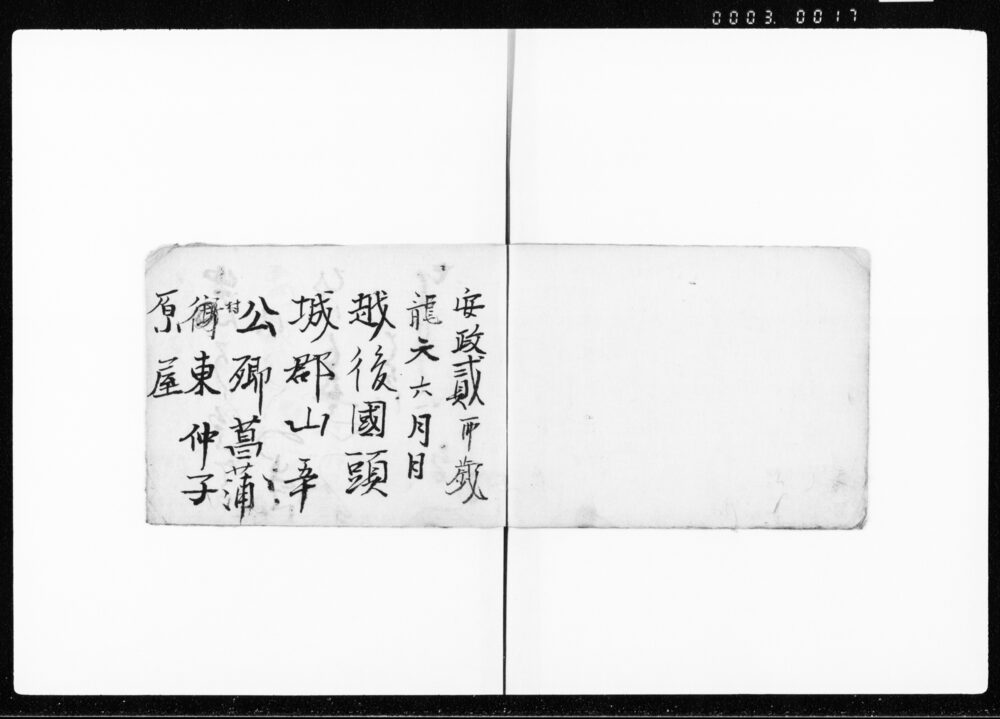 0003.0017
安政貳
龍天六月日
越後國頭
城郡山
公卿菖蒲
村
東仲子
原屋